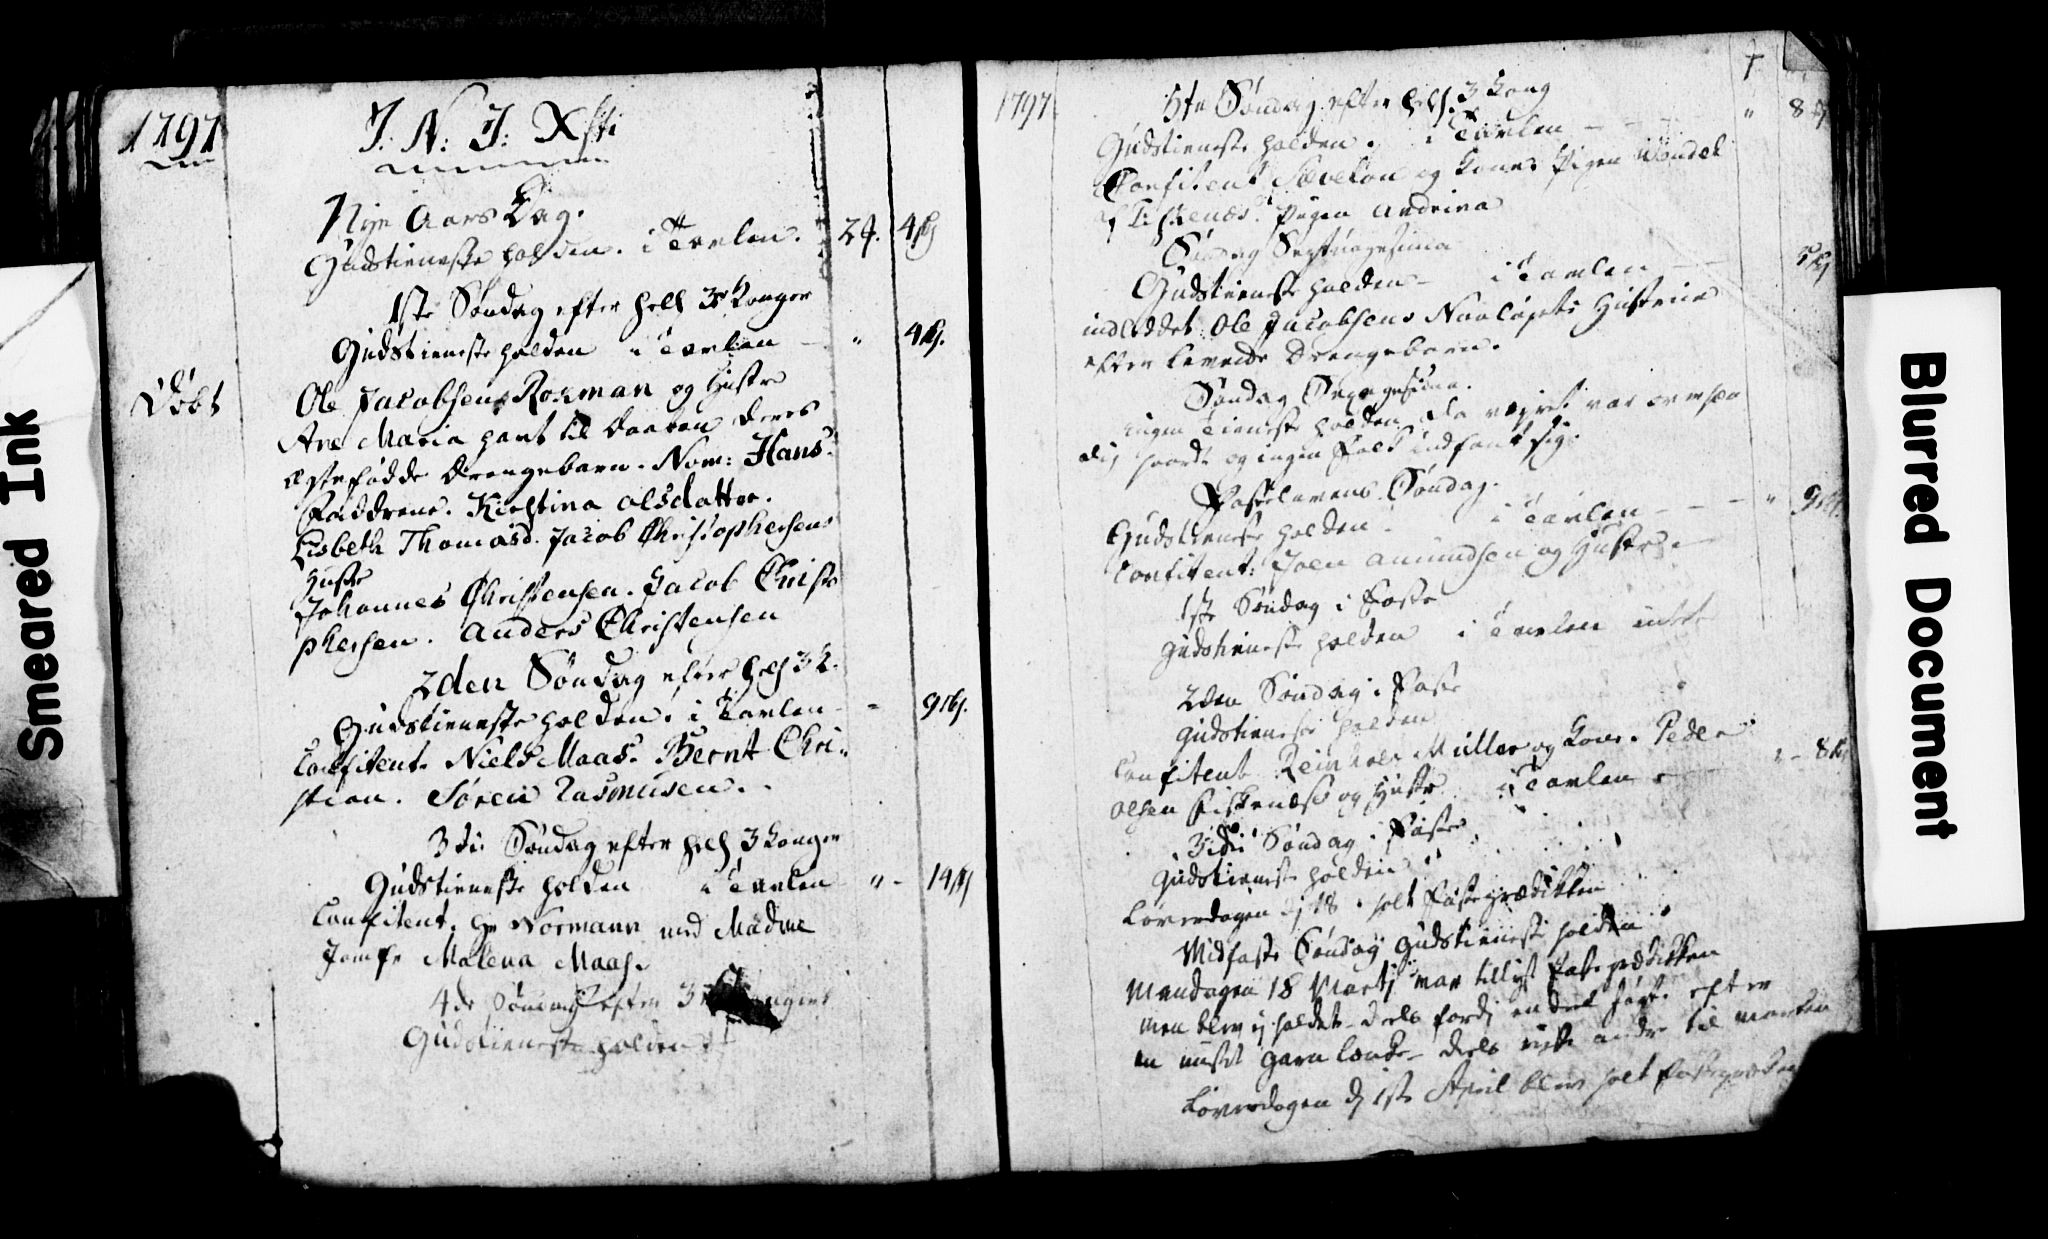 Smeared Ink
1797
J. N. J: Xsti
Nye Aars Dag.
Gudstieneste holden. i Tavlen. 24. 4 ß
1ste Søndag efter hell 3 Konger
Gudstieneste holden i Tavlen - " 4 ß.
Døbt
Ole Jacobsens Rokman og Hustr
Ane Maria havt til Daaben deres
ægtefødde Drengebarn. Nom: Hans.
Faddrene. Kirstina Olsdatter.
Lisbeth Thomasd. Jacob Christophersens
Hustr
Johannes Christensen. Jacob Christo
phersen. Anders Christensen
2den Søndag efter hell 3 K.
Gudstieneste holden. i Tavlen - 9 ß.
Confitent. Niels Maas. Bernt Chri-
stian. Søren Rasmusen.
3die Søndag efter hell 3 Konger
Gudstieneste holden i Tavlen " - 14 ß
Confitent. Hr Normann med Madme
Jomfr Malena Maas.
4de Søndag efter 3
Gudstieneste holden
1797
5te Søndag efter hell. 3 Kong
Gudstieneste holden. i Tavlen - - - " 8 ß
Confitent og Kones Pigen Wendel
Pigen Andrina
Søndag Septuagesima
Gudstieneste holden - i Tavlen - -
indleddet Ole Jacobsens Hustrue
efter levende Drengebarn.
Søndag Sexagesima.
ingen Tieneste holden da vejret var
haardt og ingen Folk indfant sig.
Fastelavens Søndag.
Gudstieneste holden - i Tavlen - - - " 9 ß.
Confitent: Joen Amundsen og Hustr
1ste Søndag i Faste
Gudstieneste holden i Tavlen intet
2den Søndag i Faste
Gudstieneste holden
Confitent Reinholt Müller og Kone. Peder
Olsen Fiskenæss og Hustr i Tavlen - 8 ß
3die Søndag i Faste
Gudstieneste holden
Løverdagen dj 18. holt Fasteprædikken
Midfaste Søndag Gudstieneste holden
Mandagen 18 Martj var tillyst Fasteprædikken
men blev ej holdet - deels fordj en deel efter
en mistet garn lænke - deels andre til
Løverdagen dj 1ste April blev holt
Blurred Document